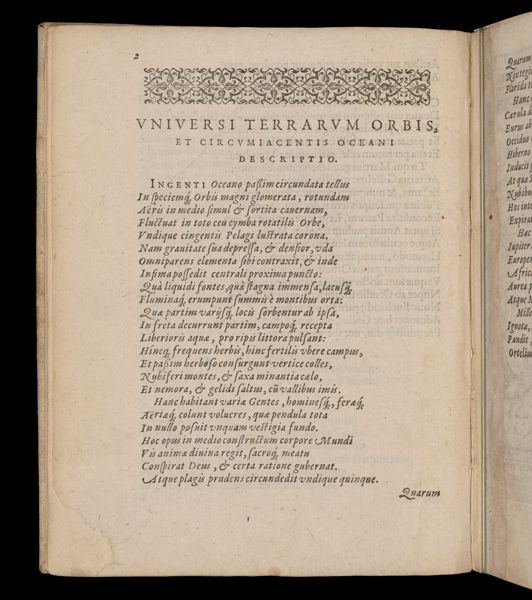 2
VNIVERSI TERRARVM ORBIS,
ET CIRCVMIACENTIS OCEANI
DESCRIPTIO.
INGENTI Oceano paßim circundata tellus
In speciemq́; Orbis magni glomerata, rotundam
Aëris in medio simul & sortita cauernam,
Fluctuat in toto ceu cymba rotatilis Orbe,
Vndique cingentis Pelagi lustrata corona.
Nam grauitate sua depressa, & densior, vda
Omniparens elementa sibi contraxit, & inde
Infima possedit centrali proxima puncto:
Quà liquidi fontes, quà stagna immensa, lacusq́;
Fluminaq́; erumpunt summis è montibus orta:
Quæ partim varijsq́; locis sorbentur ab ipsa,
In freta decurrunt partim, campoq́; recepta
Liberioris aquæ, pro ripis littora pulsant:
Hincq́; frequens herbis, hinc fertilis vbere campus,
Et paßim herboso consurgunt vertice colles,
Nubiferi montes, & saxa minantia cælo,
Et nemora, & gelidi saltus, cũ vallibus imis.
Hanc habitant variæ Gentes, hominesq́; feræq́;
Aëriæq́; colunt volucres, quæ pendula tota
In nullo posuit vnquam vestigia fundo.
Hoc opus in medio constructum corpore Mundi
Vis animæ diuina regit, sacroq́; meatu
Conspirat Deus, & certa ratione gubernat.
Atque plagis prudens circundedit vndique quinque.
Quarum
Quarum
Nix
Florida
Hanc
Cærula
Eurus ab
Occiduo
Hiberno
Induci
At quæ
Notobu
Hos inte
Expira
Hac
Iupiter
Europe
Africa
Aurea
Atque
Mille
Ignota,
Pandit
Orteliu